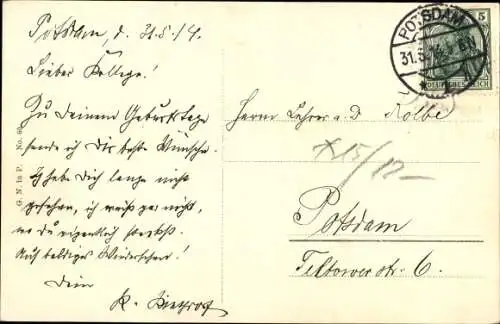 Potsdam, d. 31.5.14.
Lieber Kollege!
Zu Deinem Geburtstage
sende ich Dir beste Wünsche.
Ich habe Dich lange nicht
gesehen, ich weiß gar nicht,
wo Du eigentlich steckst.
Auf baldiges Wiedersehen!
Dein
K.
G. N. in P. No.
POTSDAM
31.5.14
5
DEUTSCHES REICH
Herrn Lehrer a.D. Kolbe
X15/12-
Potsdam
Teltower str. 6.